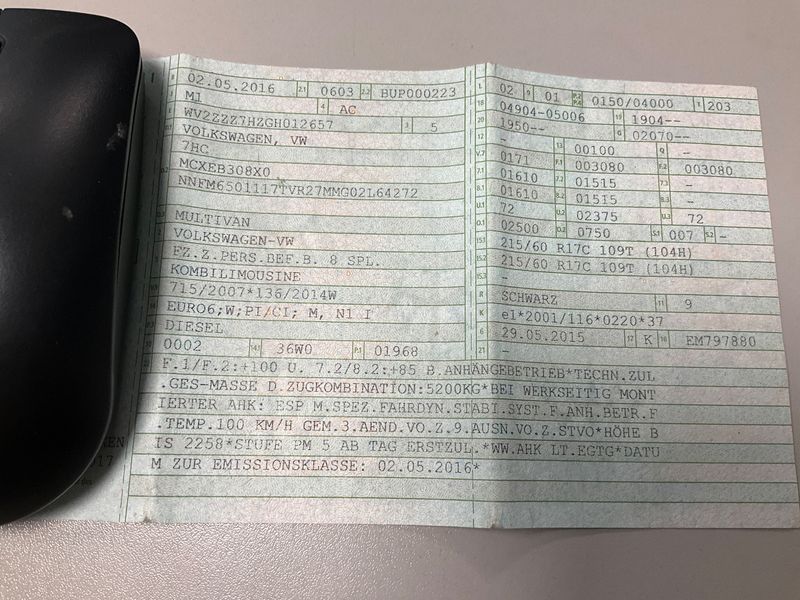 B 02.05.2016 2.1 0603 2.2 BUP000223
M1 4 AC
WV2ZZZ7HZGH012657 3 5
VOLKSWAGEN, VW
7HC
MCXEB308X0
NNFM6501117TVR27MMG02L64272
MULTIVAN
VOLKSWAGEN-VW
FZ.Z.PERS.BEF.B. 8 SPL.
KOMBILIMOUSINE
715/2007*136/2014W
EURO6;W;PI/CI; M, N1 I
DIESEL
0002 14.1 36W0 P.1 01968
L 02 9 01 P.2 P.4 0150/04000 T 203
18 04904-05006 19 1904--
20 1950-- G 02070--
12 - 13 00100 Q -
V.7 0171 F.1 003080 F.2 003080
7.1 01610 7.2 01515 7.3 -
8.1 01610 8.2 01515 8.3 -
U.1 72 U.2 02375 U.3 72
O.1 02500 O.2 0750 S.1 007 S.2 -
15.1 215/60 R17C 109T (104H)
15.2 215/60 R17C 109T (104H)
15.3 -
R SCHWARZ 11 9
K e1*2001/116*0220*37
6 29.05.2015 17 K 16 EM797880
21 -
F.1/F.2:+100 U. 7.2/8.2:+85 B.ANHÄNGEBETRIEB*TECHN.ZUL
.GES-MASSE D.ZUGKOMBINATION:5200KG*BEI WERKSEITIG MONT
IERTER AHK: ESP M.SPEZ.FAHRDYN.STABI.SYST.F.ANH.BETR.F
.TEMP.100 KM/H GEM.3.AEND.VO.Z.9.AUSN.VO.Z.STVO*HÖHE B
IS 2258*STUFE PM 5 AB TAG ERSTZUL.*WW.AHK LT.EGTG*DATU
M ZUR EMISSIONSKLASSE: 02.05.2016*